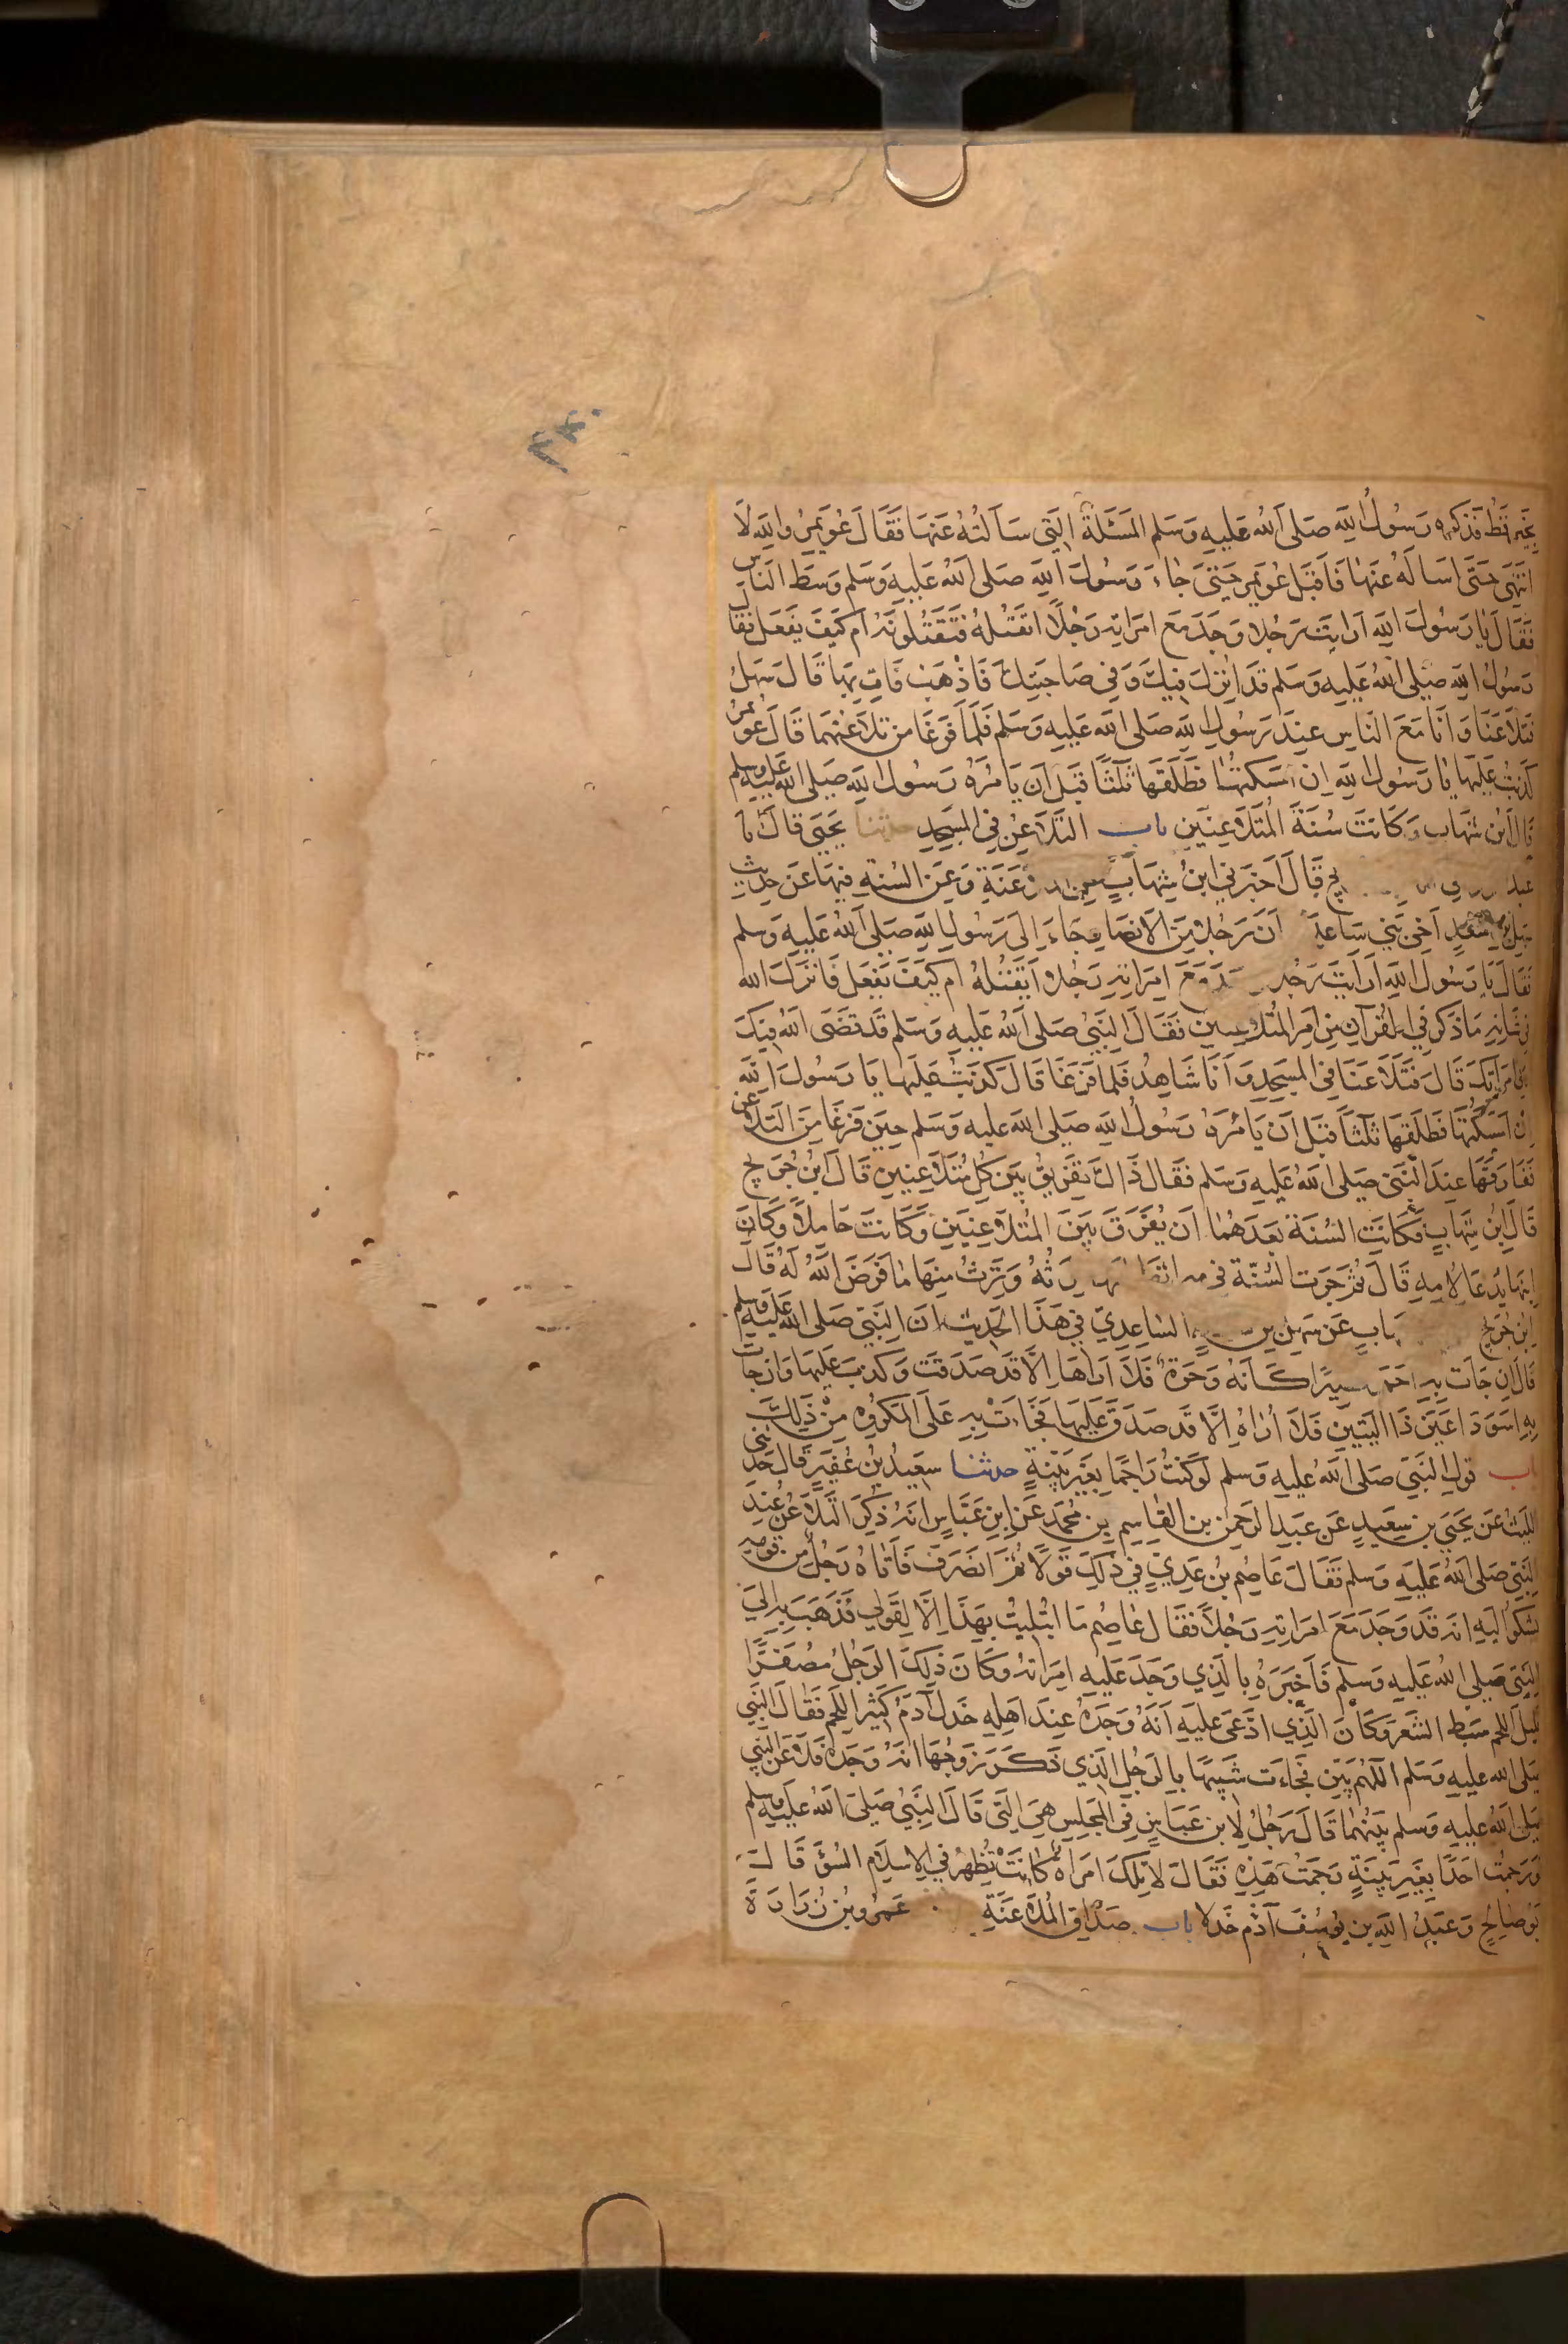 ٣٤٠
بِخَيْرٍ قط قد كره رَسُولُ اللهِ صَلَى اللهُ عَلَيهِ وَسَلم المَسْئَلَةَ التِي سَأَلتُهُ عَنهَا فَقَالَ عُوَيمِرُ وَاللهِ لَا
انتَهِى حَتَى اسَالهُ عَنهَا فَاَقبَلَ عُوَيمِر حَتىَ جَاءَ رَسُولَ اللهِ صَلى اللهُ عَلَيهِ وَسَلم وَسَطَ النَاسِ
فَقَالَ يَا رَسُولَ اللهِ اَرَايتَ رَجُلا وَجَدَ مَعَ امرَاتِهِ رَجُلًا ايَقتُلهُ فَتَقتُلونَهُ ام كَيفَ يَفعَل فقَالَ
رَسُولُ اللهِ صَلى اللهُ عَلَيهِ وَسَلم قَد انزلَ فِيكَ وَفى صَاحِبتِكَ فَاذْهَب فَاتِ بِهَا قَالَ سَهلُ
فَتَلَاعَنَا وَانَا مَعَ النَاسِ عِندَ رَسُولِ اللهِ صَلى الله عَلَيهِ وَسَلم فَلمَا فَرَغَا من تلَاعُنِهمَا قَالَ عُوَيمِرُ
كَذَبتُ عَلَيهَا يَا رَسُولَ اللهِ اِن امسَكتهَا فَطَلَقَهَا ثَلثًا قَبلَ اَن يَامُرَهُ رَسُولُ اللهِ صَلى الله عَلَيهِ وَسلم
قَالَ ابنُ شِهَابٍ وَكَانَت سُنَةَ المُتَلَاعِنَينِ باب التَلَاعُنِ فِي المَسجِدِ حدثنا يَحيَى قَالَ انا
عبد قَالَ اَخبَرَني ابنُ شِهَابٍ عن الملاعَنَةِ وَعَنِ السُنةِ فِيهَا عَن حَدِيثِ
سَهلِ بنِ سَعدٍ اَخِى بَنِي سَاعِدَةَ اَنَ رَجُلا مِنَ الاَنصَارِ جَاءَ اِلَى رَسُولِ اللهِ صَلى اللهُ عَليهِ وَسلم
فَقَالَ يَا رَسُولَ اللهِ اَرَاَيتَ رَجُلا وَجَدَ مَعَ امرَاتِهِ رَجُلا اَيَقتُلهُ ام كَيفَ يَفعَل فَانزَلَ الله
فِي شَانِهِ مَا ذَكَرَ فِي القُرآنِ مِن اَمرِ المُتَلاعِنينِ فَقَالَ النَبِيُ صَلى اللهُ عَلَيهِ وَسَلم قَد قَضَى اللهُ فِيكَ
وَفِي امرَاتِكَ قَالَ فَتَلَاعَنَا فِي المَسجِدِ وَ اَنَا شَاهِدُ فَلَمَا فَرَغَا قَالَ كَذَبتُ عَلَيهَا يَا رَسُولَ اللهِ
اِن اَمسَكتُهَا فَطَلَقَهَا ثَلثًا قَبلَ ان يَامُرَهُ رَسُولُ اللهِ صَلى الله عَليهِ وَسَلم حِينَ فَرَغَا مِنَ التَلَاعُنِ
فَفَارَقَهَا عِندَ النَبيِ صَلى اللهُ عَلَيهِ وَسَلم فَقَال ذَاكَ تَفرِيقُ بَينَ كلِ مُتَلَاعِنَينِ قَالَ ابنُ جُرَيجٍ
قَالَ ابنُ شِهَابٍ فَكَانَتِ السُنَةُ بَعدَهُمَا اَن يُفَرَقَ بَينَ المُتَلَاعِنَينِ وَكَانَت حَامِلًا وَكَانَ
ابنهَا يُدعَا لِامِهِ قَالَ ثُمَ جَرَت السُنّة في ميراثهَا انها تَرِثُهُ وَيَرِثُ مِنهَا مَا فَرَضَ اللهُ لَهُ قَالَ
ابنُ جُرَيجٍ شهَابٍ عَن سَهلِ بنِ السَاعِدِيِ فِي هَذَا الحَدِيثِ انَ النَبِيَ صَلى الله عَلَيهِ وَسلم
قَالَ اِن جَاءَت بِهِ احمَر قصيرًا كَانَهُ وَحَرَة فَلَا اَرَاهَا اِلَّا قَد صَدَقَت وَكَذَبَ عَلَيهَا وَان جَاءَت
بِهِ اسوَدَ اعيَنَ ذَا اليَتَينِ فَلَا اُرَاهُ اِلَّا قَد صَدَقَ عَلَيهَا فَجَاءَتْ بِهِ عَلَى المَكرُوهِ مِنْ ذَلِكَ
باب قولِ النَبيِ صَلى اللهُ عَليهِ وَسلم لَو كُنتُ رَاجِمًا بِغَيرِ بَيِنَةٍ حدثنا سَعِيدُ بنُ عُفَيرٍ قَالَ حَدثني
اللَيثُ عَن يَحيَى بنِ سَعِيدٍ عَن عَبدِ الرَحمنِ بنِ القَاسِمِ بنِ مُحَمد عَنِ ابنِ عَبَاسٍ انَهُ ذُكِرَ التَلَاعُنُ عِندَ
النَبِيِ صَلى اللهُ عَلَيهِ وَسَلم فَقَالَ عَاصِمُ بنُ عَدِيٍ فِي ذَلِكَ قَولًا ثُمَ انصَرَفَ فَاَتَاهُ رَجُلُ مِن قَومِهِ
يَشكُوا اليهِ انه قَد وَجَدَ مَعَ امرَاتِهِ رَجُلًا فَقَال عَاصِم مَا ابتُلِيتُ بِهَذَا اِلَّا لِقَولِي فَذَهَبَ بِهِ اِلَى
النَبِيِ صَلى اللهُ عَلَيهِ وَسَلم فَاَخبَرَهُ بِالَذِي وَجَدَ عَلَيهِ امرَاتَهُ وَكَانَ ذَلِكَ الرَجُلُ مُصفَرًا
قليلَ اللحمِ سَبِط الشَعَرِ وَكَانَ الَذِي ادَعَى عَلَيهِ اَنَهُ وَجَدَهُ عِندَ اَهلِهِ خَدلًا آدَمَ كَثِيرَ اللَحمِ فَقَالَ النَبي
صَلى الله عَليهِ وَسَلم اللهُمَ بَيِن فَجَاءَت شَبِيهًا بِالرَجُلِ الَذِي ذَكَرَ زَوجُهَا انَهُ وَجَدَهُ فَلَاعَنَ النَبي
صَلى اللهُ عَلَيهِ وَسلم بَينَهُمَا قَالَ رَجُلُ لِابنِ عَبَاسٍ فِي المَجلِسِ هِيَ التي قَالَ النَبِيُ صَلى اللهُ عَلَيهِ وَسلم
لَو رَجَمتُ احَدًا بِغَيرِ بَيِنَةٍ رَجَمتُ هَذِهِ فَقَالَ لَا تِلكَ امرَاة كَانَتْ تُظهِرُ في الاِسلَامِ السُوءَ قَالَ
اَبُو صَالِحٍ وَعَبدُ اللهِ بن يُوسُفَ آدَم خَدلا باب صَدَاقِ المُلاعَنَةِ عَمرُو بنُ زُرَارَةَ